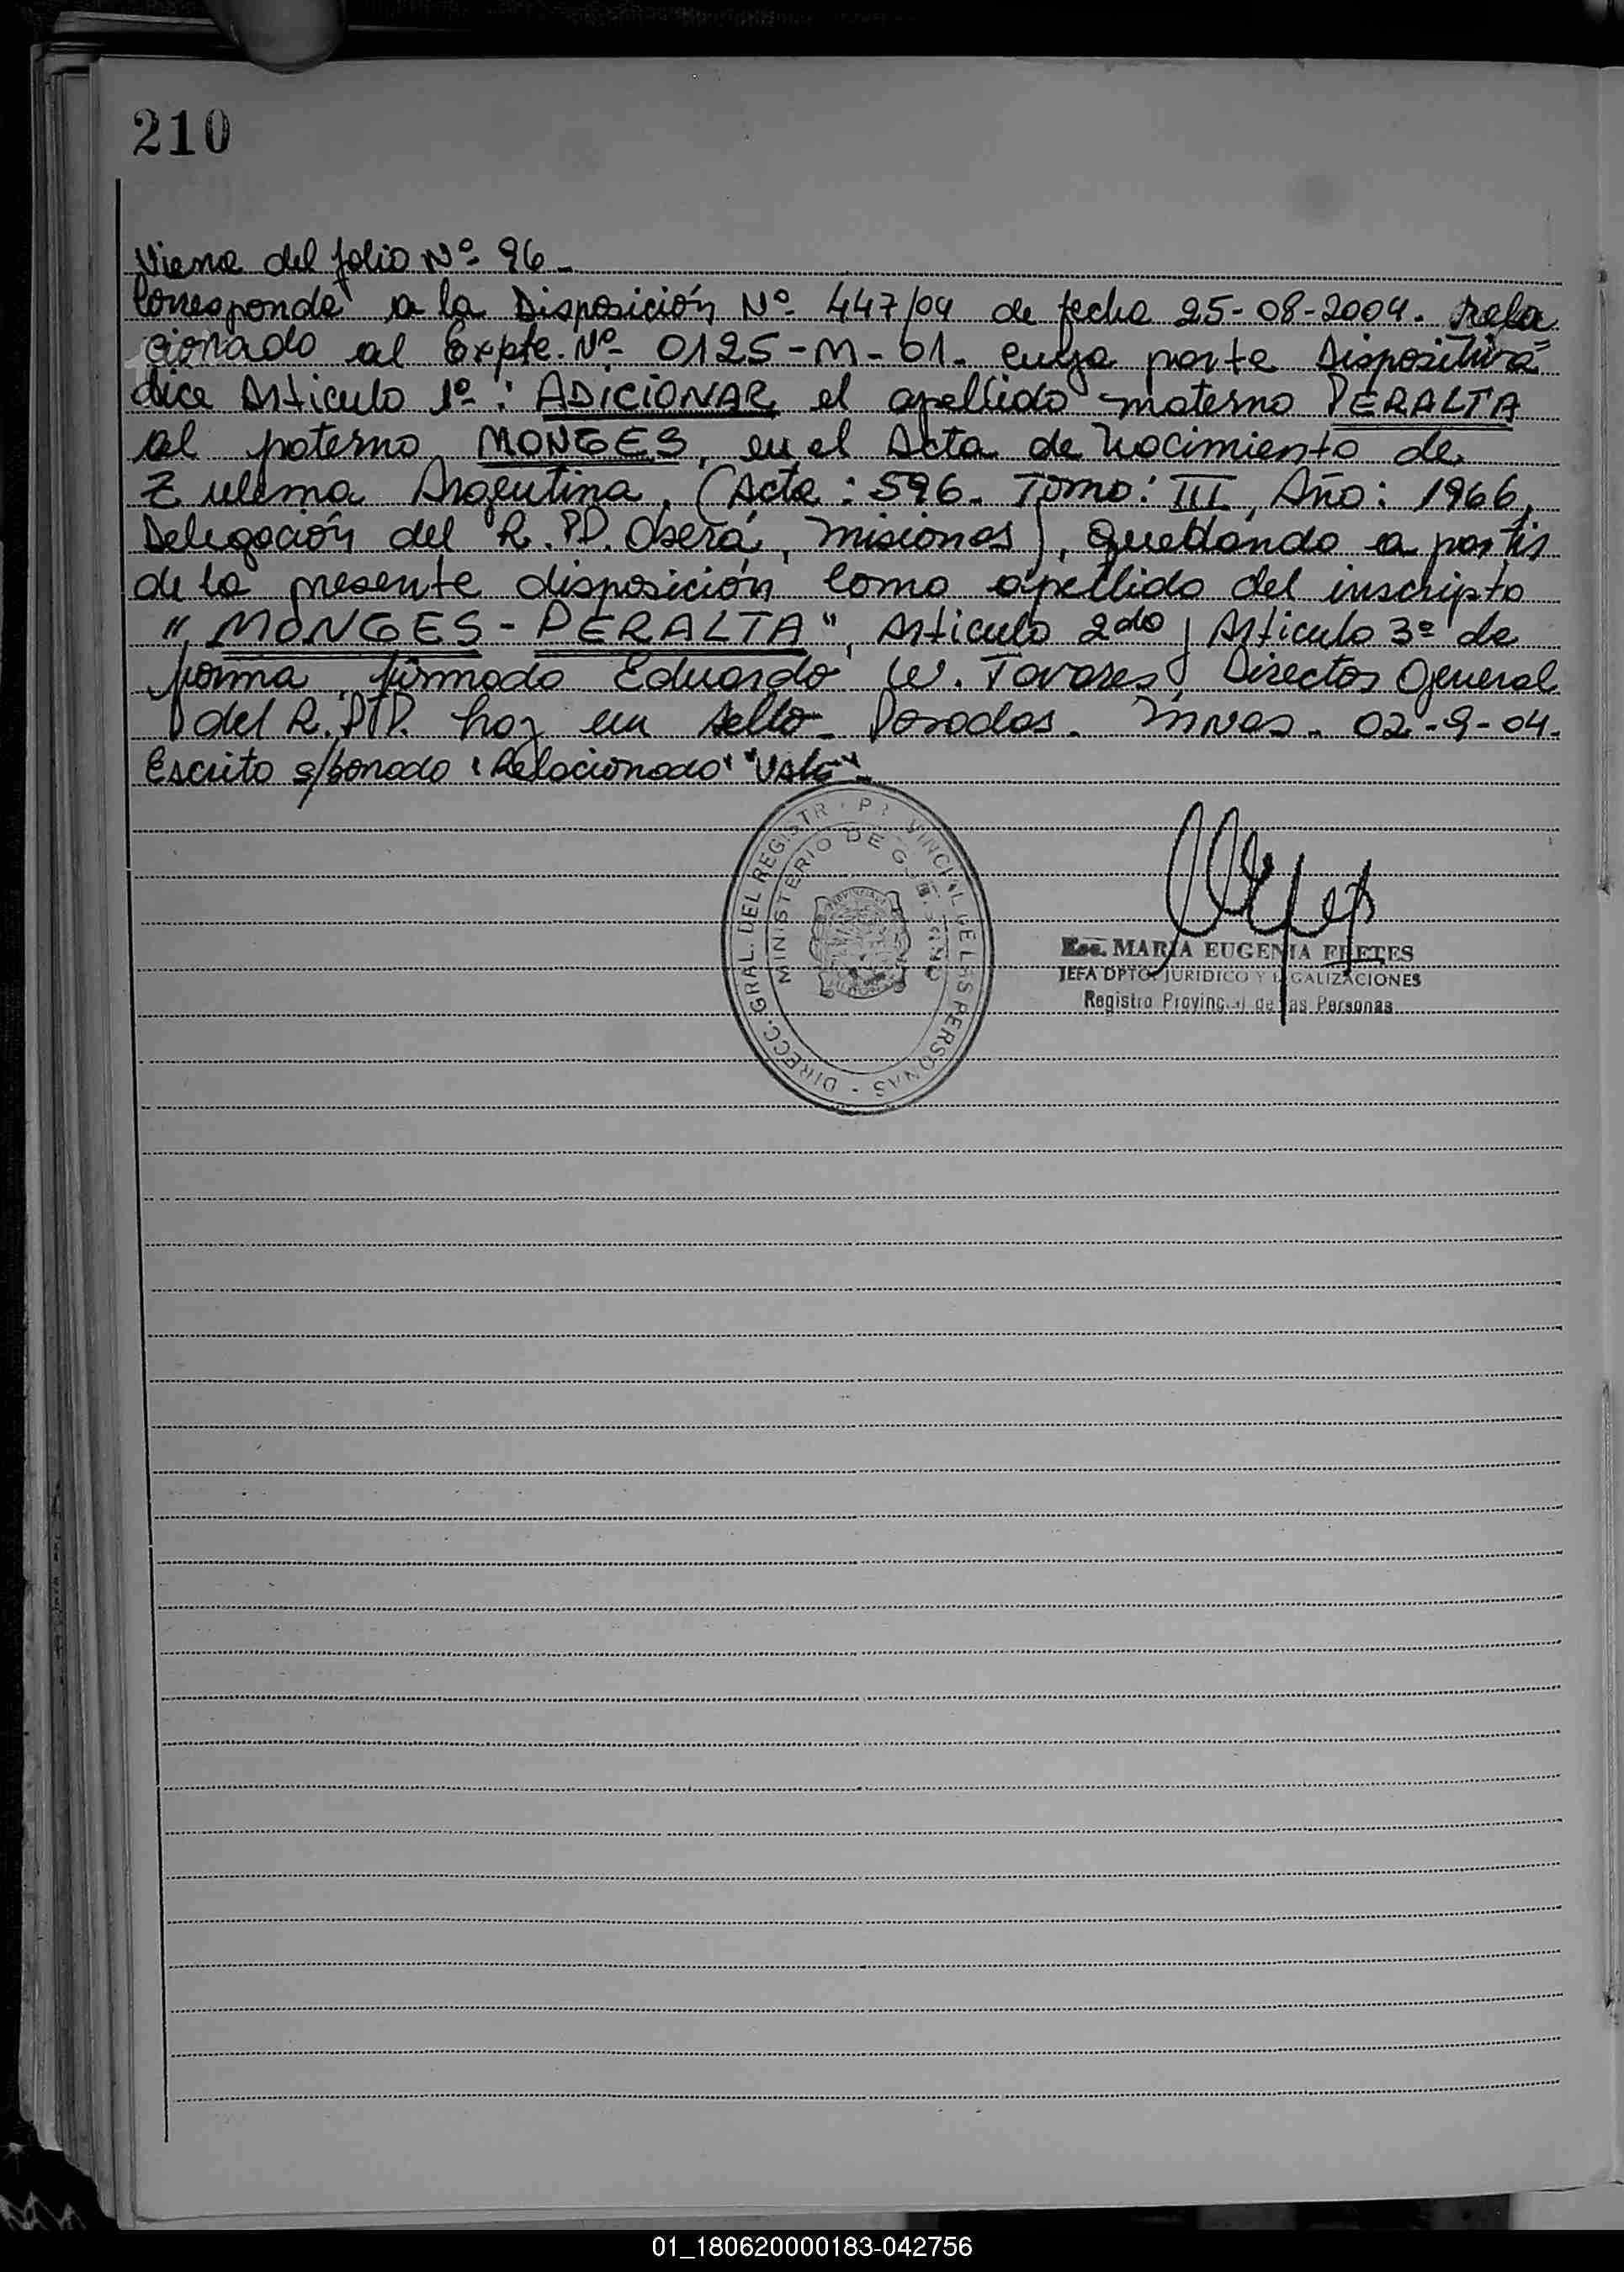 210
Viene del folio Nº 96_
Corresponde a la Disposición Nº 447/04 de fecha 25-08-2004. Rela
cionado al Expte. Nº 0125-M-01. cuya parte Dispositiva=
dice Articulo 1º: ADICIONAR el apellido materno PERALTA
al paterno MONGES, en el Acta de Nacimiento de
Zulema Argentina, (Acta: 596. Tomo: III, Año: 1966,
Delegación del R.P.P. Oberá, Misiones), quedando a partir
de la presente disposición como apellido del inscripto
"MONGES-PERALTA", Articulo 2do y Articulo 3º de
forma, firmado Eduardo W. Tavares Director General
del R.P.P. hay un sello_ Posadas. Mnes. 02-9-04.
Escrito s/borrado "Relacionado" "Vale"_
DIRECC. GRAL. DEL REGISTR. PROVINCIAL DE LAS PERSONAS -
MINISTERIO DE GOBIERNO
Esc. MARIA EUGENIA FRETES
JEFA DPTO. JURIDICO Y LEGALIZACIONES
Registro Provincial de las Personas
01_180620000183-042756